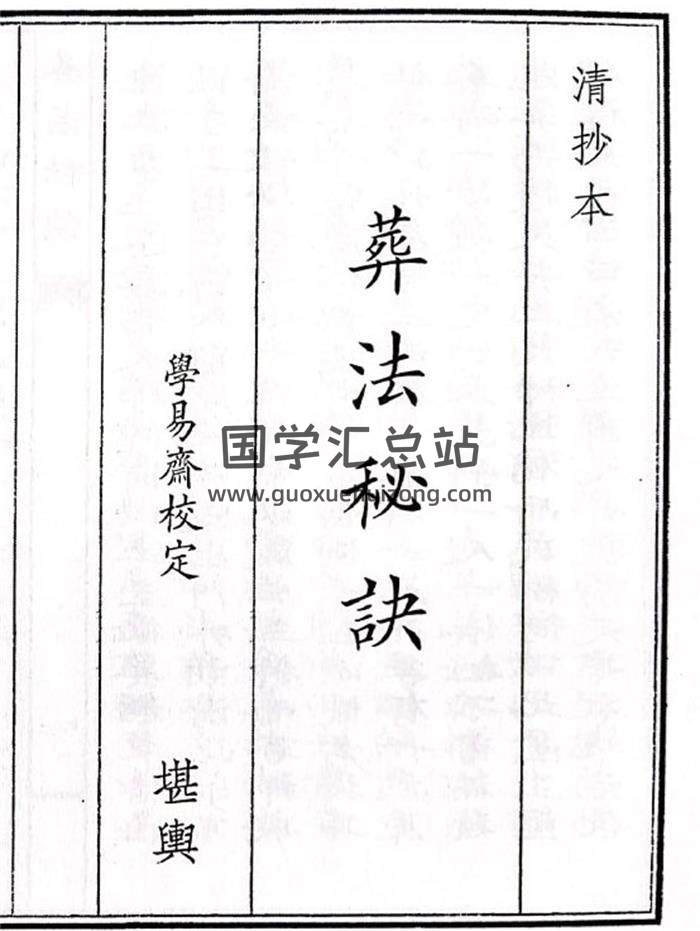 清抄本
葬法秘訣
學易齋校定
堪輿
国学汇总站
www.guoxuehuizong.com